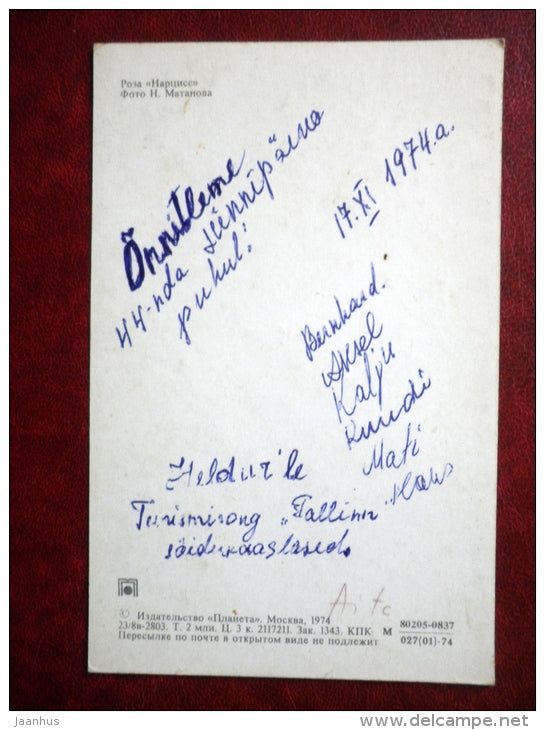 Роза «Нарцисс»
Фото Н. Матанова
Õnnitleme
44-nda sünnipäeva
puhul!
17. XI 1974.a.
Bernhard.
Aksel
Kalju
Ruudi
Mati
Hans
Heldur'le
Turismirong „Tallinn"
sõidukaaslased.
Aita
© Издательство «Планета». Москва, 1974
23/8в-2803. Т. 2 млн. Ц. 3 к. 2117211. Зак. 1343. КПК М 80205-0837
027(01)-74
Пересылке по почте в открытом виде не подлежит
jaanhenn
www.delcampe.net